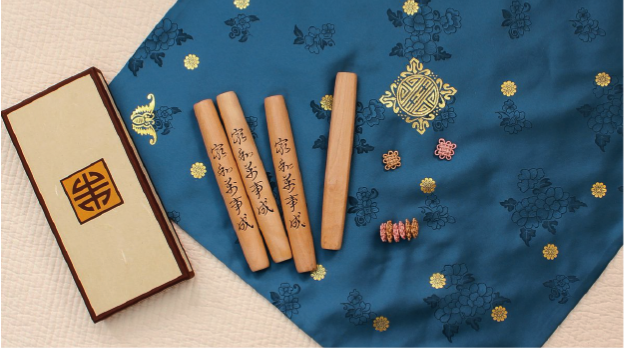 家和萬事成
家和萬事成
家和萬事成